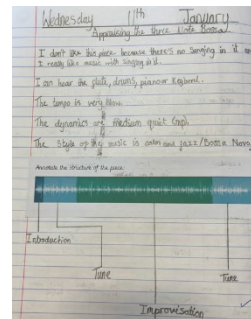 Wednesday 11th January
Appraising the three Note Bossa
I don't like this piece because there's no Singing in it and
I really like music with singing in it.
I can hear the flute, drums, piano or Keyboard.
The tempo is very slow.
The dynamics are medium quit (mp).
The Style of the music is calm and jazz/Bossa Nova
Annotate the structure of the piece:
Introduction
Tune
Tune
Improvisation